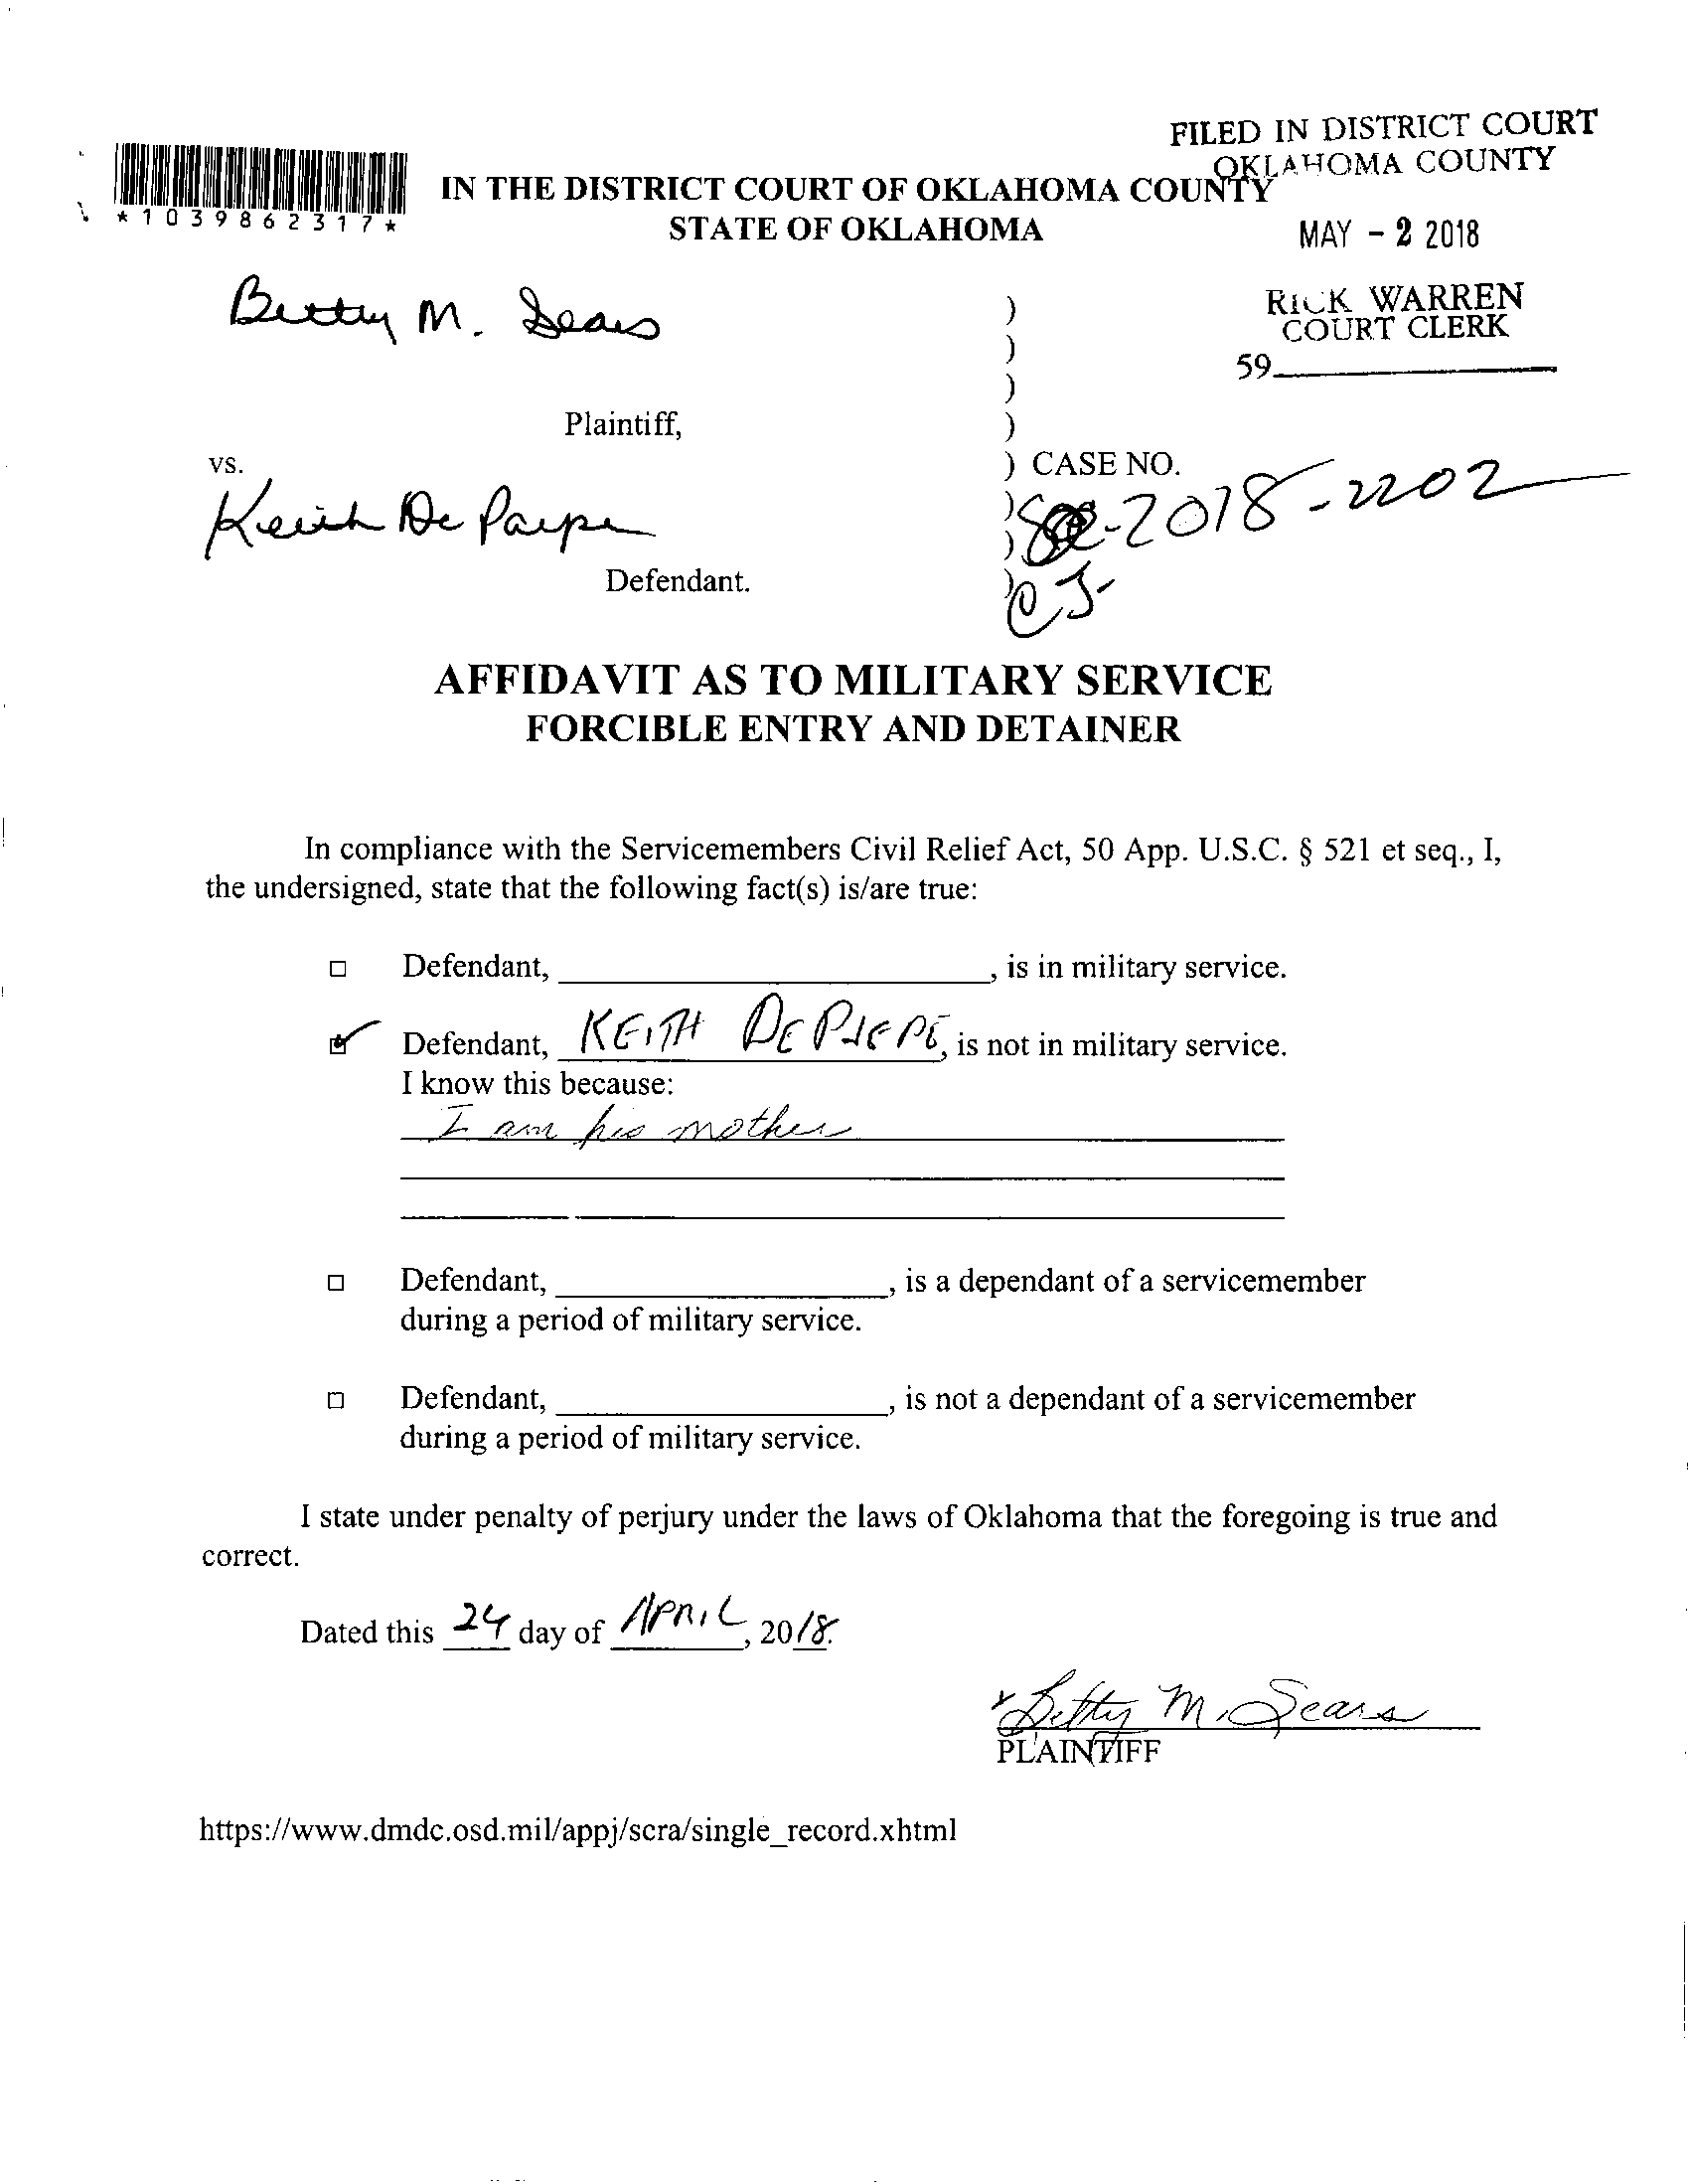 FILED IN DISTRICT COURT
OKLAHOMA COUNTY
IN THE DISTRICT COURT OF OKLAHOMA COUNTY
*1039862317*
STATE OF OKLAHOMA
MAY - 2 2018
Betty M. Sears
RICK WARREN
COURT CLERK
59
Plaintiff,
vs.
) CASE NO.
Keith De
-2018-2202
Defendant.
CJ-
AFFIDAVIT AS TO MILITARY SERVICE
FORCIBLE ENTRY AND DETAINER
In compliance with the Servicemembers Civil Relief Act, 50 App. U.S.C. § 521 et seq., I,
the undersigned, state that the following fact(s) is/are true:
Defendant, ____, is in military service.
Defendant, KEITH DEPIEPE, is not in military service.
I know this because:
I am his mother
Defendant, ____, is a dependant of a servicemember
during a period of military service.
Defendant, ____, is not a dependant of a servicemember
during a period of military service.
I state under penalty of perjury under the laws of Oklahoma that the foregoing is true and
correct.
Dated this 24 day of APRIL, 2018.
x Betty M. Sears
PLAINTIFF
https://www.dmdc.osd.mil/appj/scra/single_record.xhtml